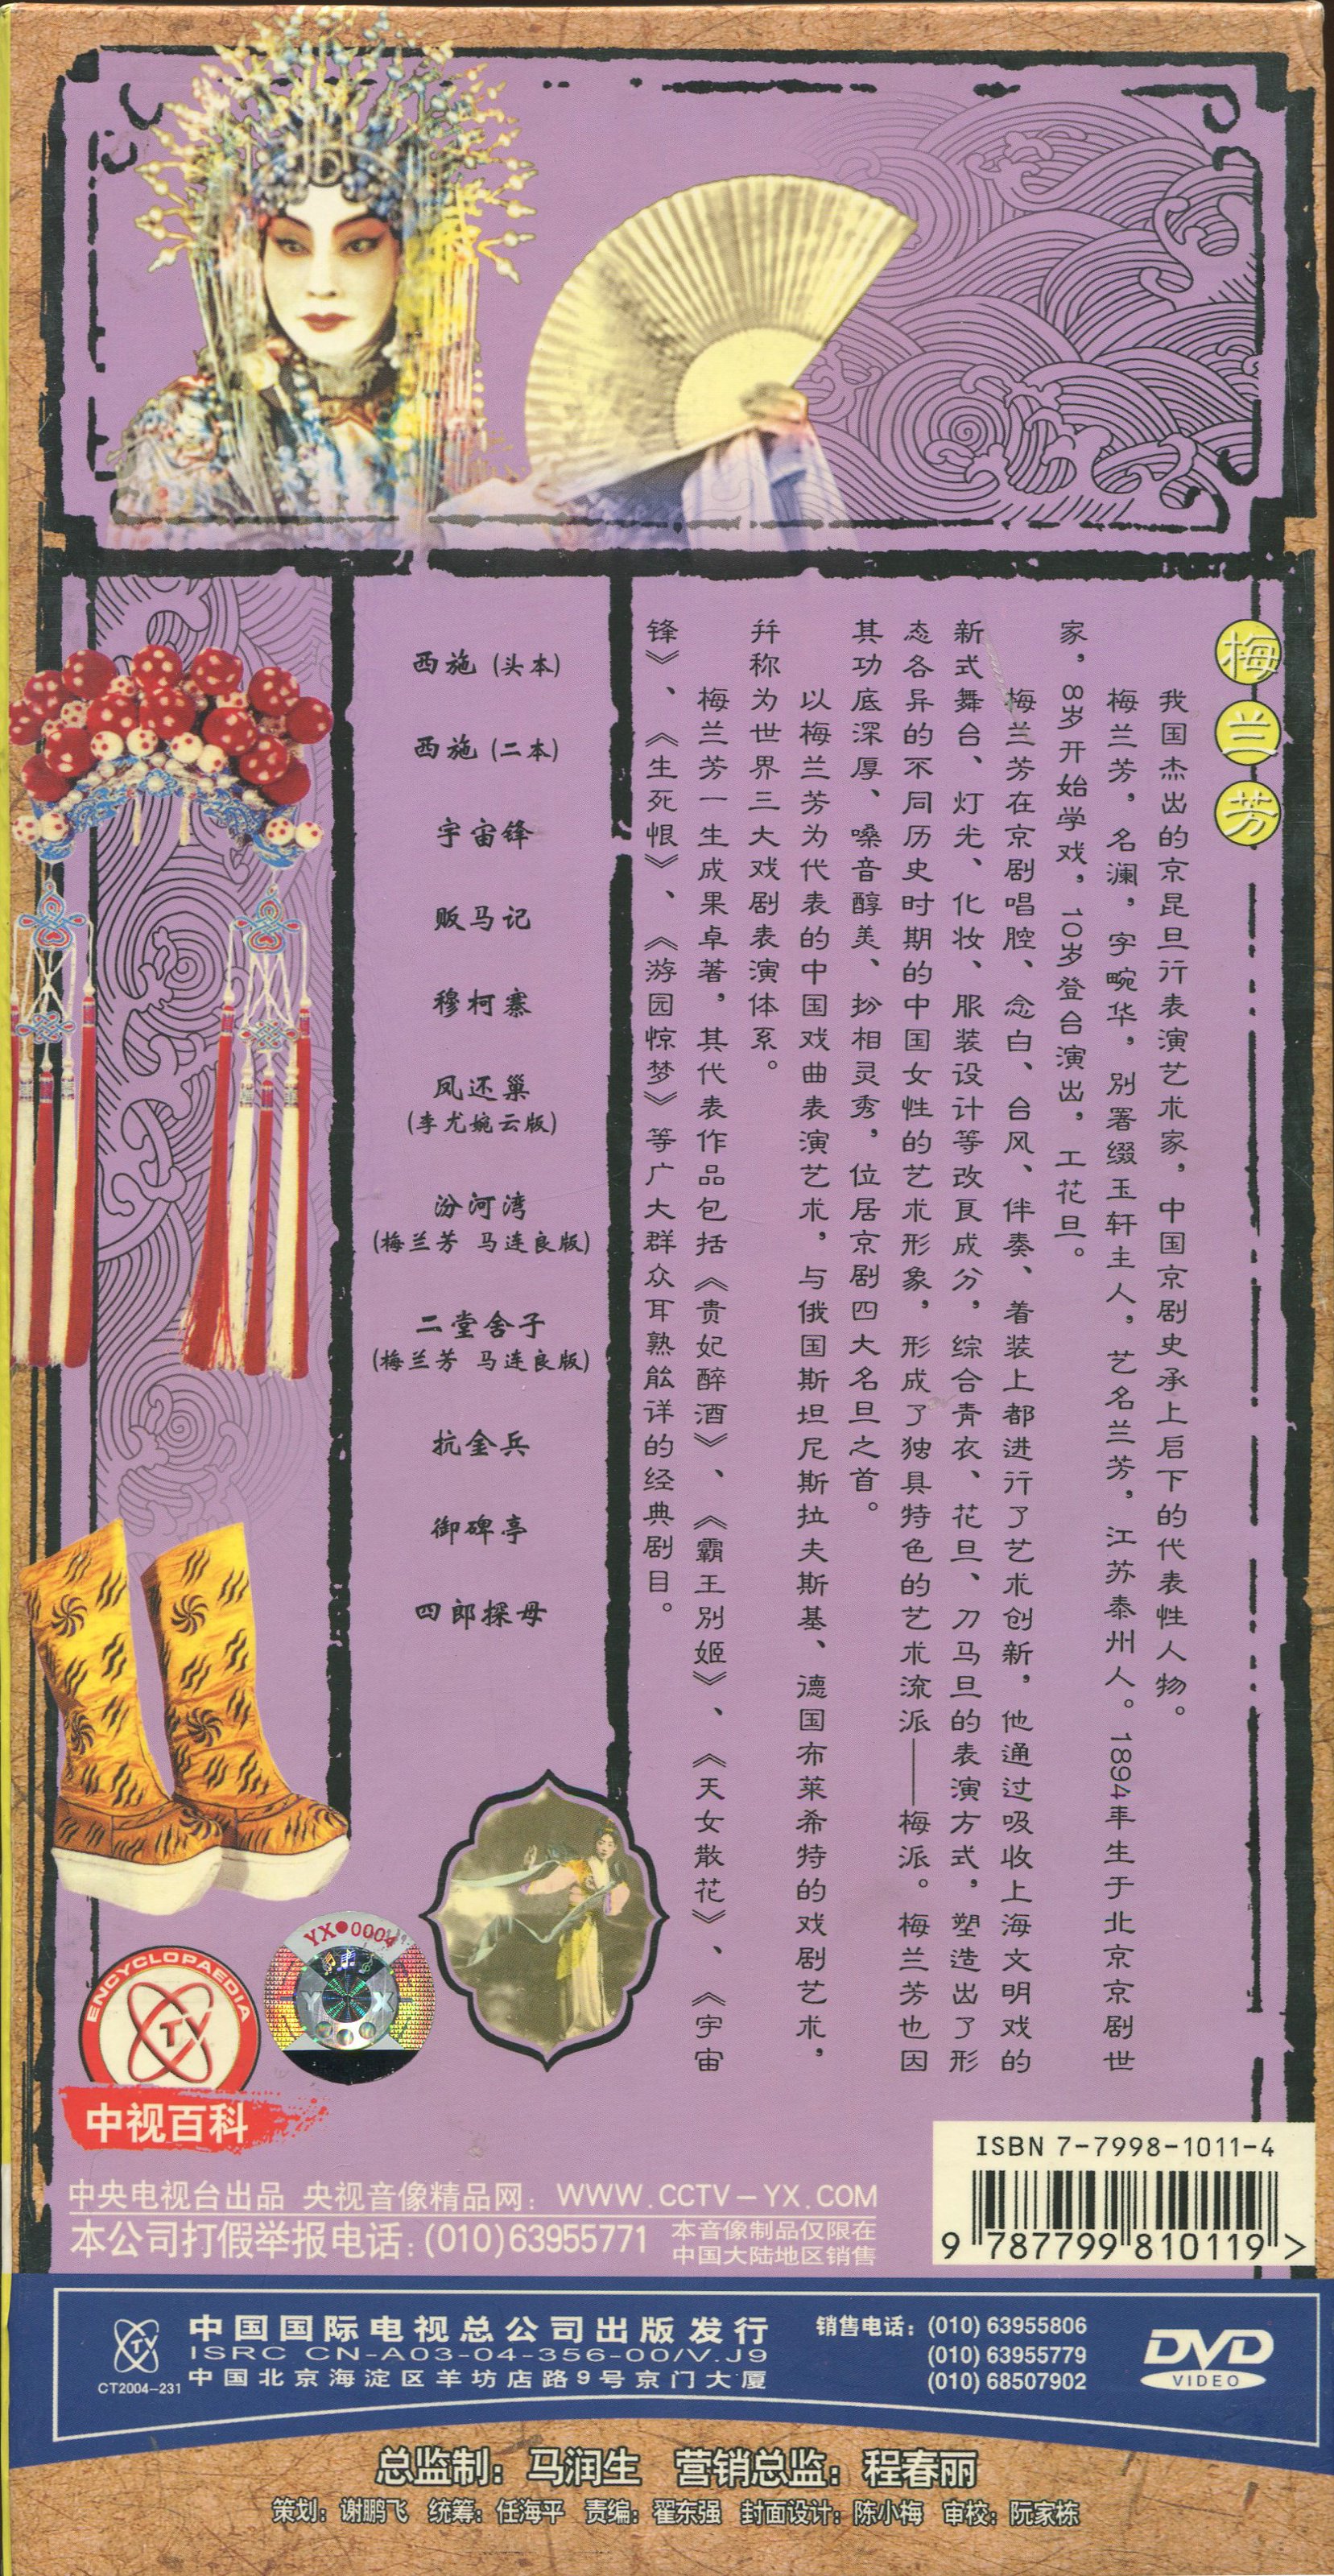 梅兰芳
我国杰出的京昆旦行表演艺术家，中国京剧史承上启下的代表性人物。
梅兰芳，名澜，字畹华，别署缀玉轩主人，艺名兰芳，江苏泰州人。1894年生于北京京剧世
家，8岁开始学戏，10岁登台演出，工花旦。
梅兰芳在京剧唱腔、念白、台风、伴奏、着装上都进行了艺术创新，他通过吸收上海文明戏的
新式舞台、灯光、化妆、服装设计等改良成分，综合青衣、花旦、刀马旦的表演方式，塑造出了形
态各异的不同历史时期的中国女性的艺术形象，形成了独具特色的艺术流派——梅派。梅兰芳也因
其功底深厚、嗓音醇美、扮相灵秀，位居京剧四大名旦之首。
以梅兰芳为代表的中国戏曲表演艺术，与俄国斯坦尼斯拉夫斯基、德国布莱希特的戏剧艺术，
并称为世界三大戏剧表演体系。
梅兰芳一生成果卓著，其代表作品包括《贵妃醉酒》、《霸王别姬》、《天女散花》、《宇宙
锋》、《生死恨》、《游园惊梦》等广大群众耳熟能详的经典剧目。
西施（头本）
西施（二本）
宇宙锋
贩马记
穆柯寨
凤还巢
(李尤婉云版)
汾河湾
(梅兰芳 马连良版)
二堂舍子
(梅兰芳 马连良版)
抗金兵
御碑亭
四郎探母
YX●0004
ENCYCLOPAEDIA
TV
中视百科
ISBN 7-7998-1011-4
9 787799 810119 >
中央电视台出品 央视音像精品网：WWW.CCTV－YX.COM
本公司打假举报电话：(010)63955771
本音像制品仅限在
中国大陆地区销售
TV
CT2004-231
中国国际电视总公司出版发行
ISRC CN-A03-04-356-00/V.J9
中国北京海淀区羊坊店路9号京门大厦
销售电话：(010) 63955806
(010) 63955779
(010) 68507902
DVD
VIDEO
总监制：马润生 营销总监：程春丽
策划：谢鹏飞 统筹：任海平 责编：翟东强 封面设计：陈小梅 审校：阮家栋